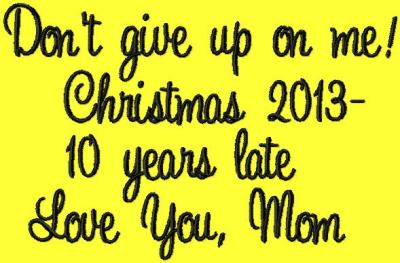 Don't give up on me!
Christmas 2013-
10 years late
Love You, Mom